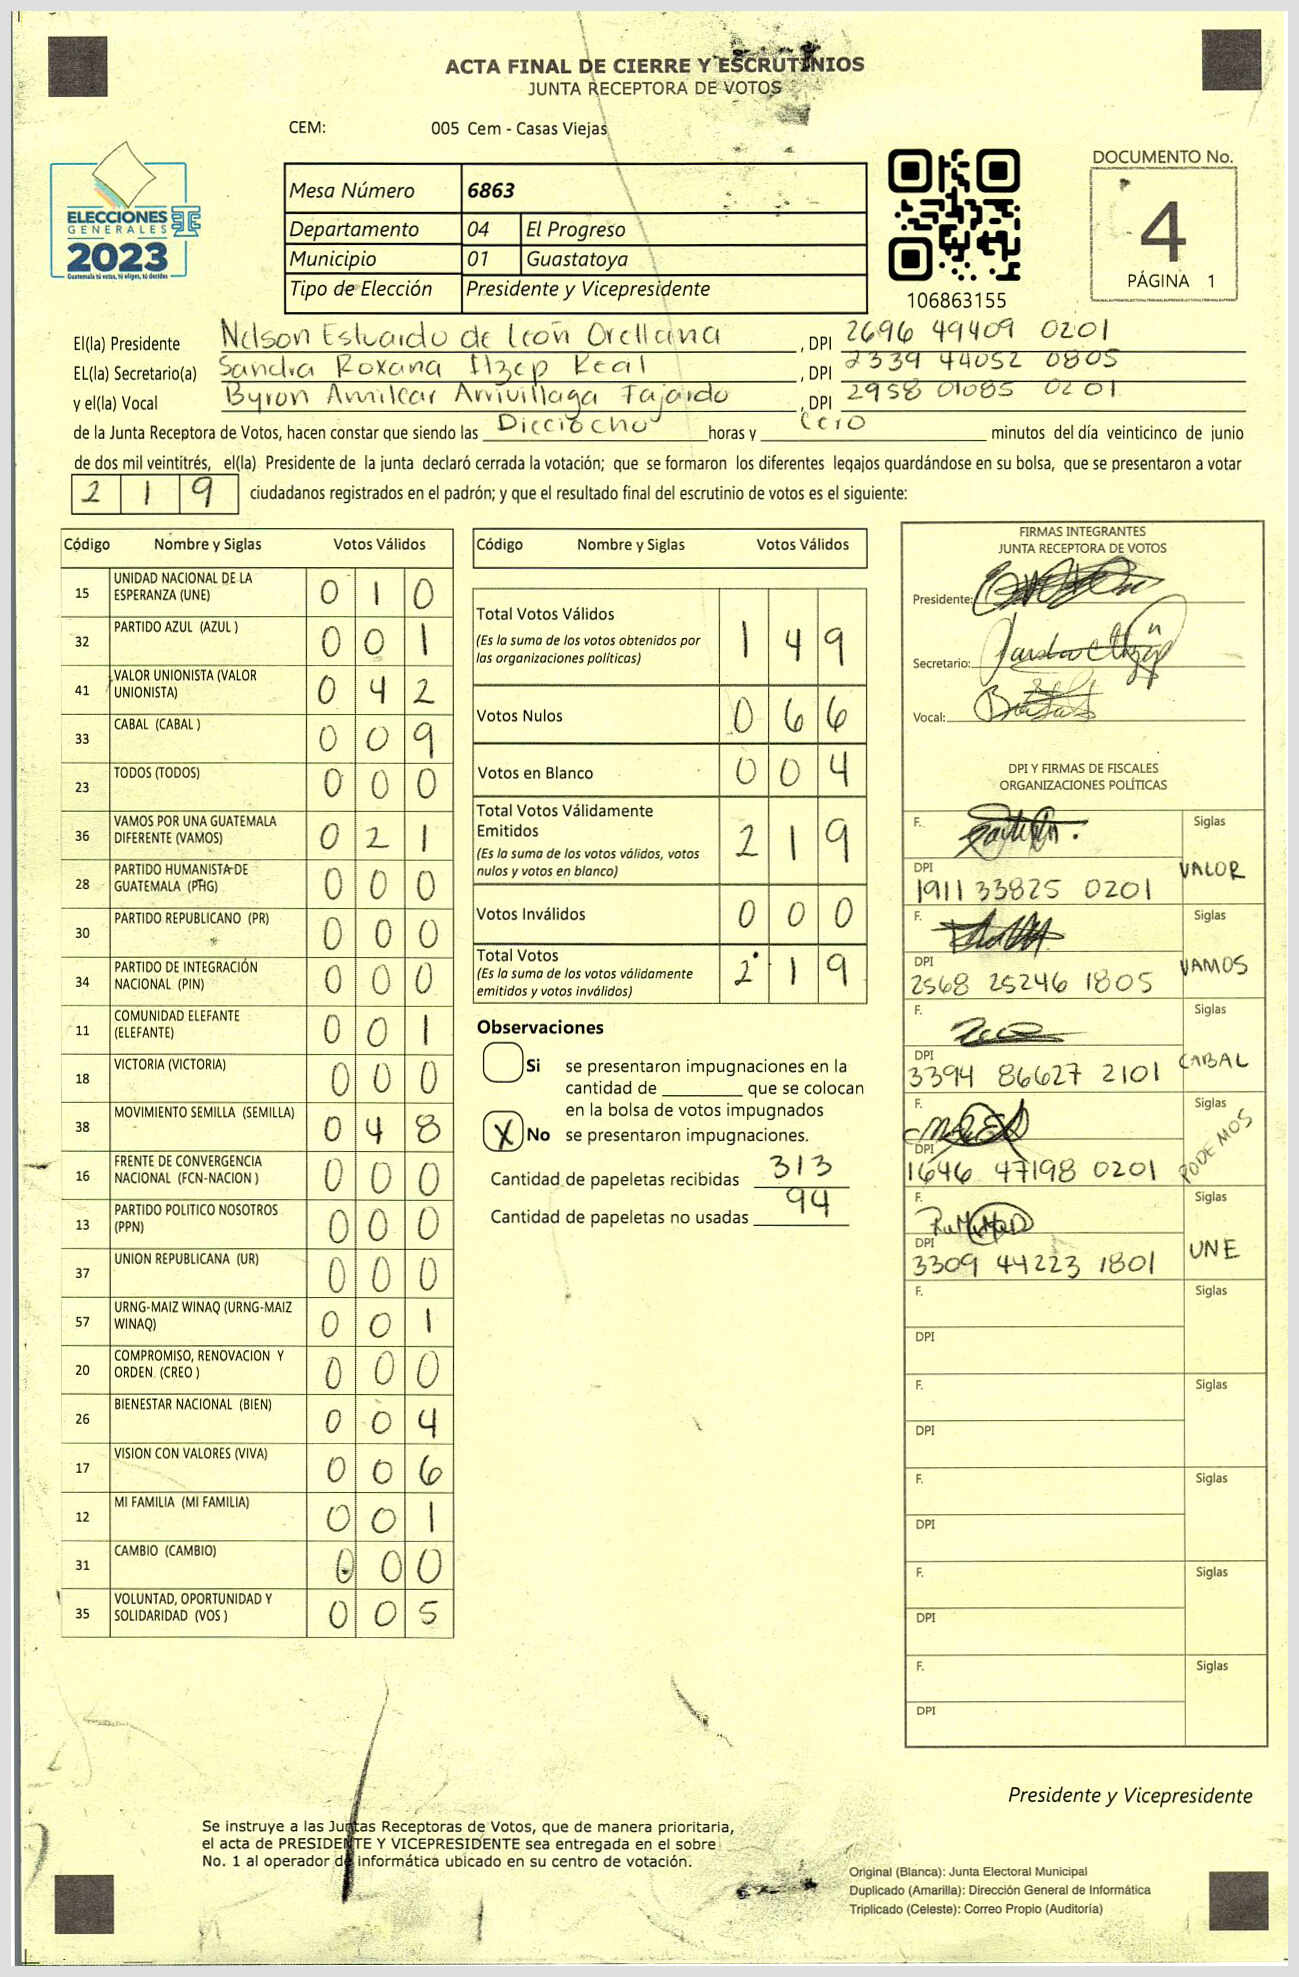 ACTA FINAL DE CIERRE Y ESCRUTINIOS
JUNTA RECEPTORA DE VOTOS
CEM: 005 Cem - Casas Viejas
ELECCIONES
GENERALES
2023
Guatemala tú votas, tú eliges, tú decides
Mesa Número 6863
Departamento 04 El Progreso
Municipio 01 Guastatoya
Tipo de Elección Presidente y Vicepresidente
106863155
DOCUMENTO No.
4
PÁGINA 1
El(la) Presidente Nelson Estuardo de León Orellana, DPI 2696 49409 0201
EL(la) Secretario(a) Sandra Roxana Itzep Real, DPI 2339 44052 0805
y el(la) Vocal Byron Amilcar Arrivillaga Fajardo, DPI 2958 01085 0201
de la Junta Receptora de Votos, hacen constar que siendo las Dieciocho horas y Cero minutos del día veinticinco de junio
de dos mil veintitrés, el(la) Presidente de la junta declaró cerrada la votación; que se formaron los diferentes legajos guardándose en su bolsa, que se presentaron a votar
219 ciudadanos registrados en el padrón; y que el resultado final del escrutinio de votos es el siguiente:
Código Nombre y Siglas Votos Válidos
15 UNIDAD NACIONAL DE LA ESPERANZA (UNE) 010
32 PARTIDO AZUL (AZUL ) 001
41 VALOR UNIONISTA (VALOR UNIONISTA) 042
33 CABAL (CABAL ) 009
23 TODOS (TODOS) 000
36 VAMOS POR UNA GUATEMALA DIFERENTE (VAMOS) 021
28 PARTIDO HUMANISTA DE GUATEMALA (PHG) 000
30 PARTIDO REPUBLICANO (PR) 000
34 PARTIDO DE INTEGRACIÓN NACIONAL (PIN) 000
11 COMUNIDAD ELEFANTE (ELEFANTE) 001
18 VICTORIA (VICTORIA) 000
38 MOVIMIENTO SEMILLA (SEMILLA) 048
16 FRENTE DE CONVERGENCIA NACIONAL (FCN-NACION ) 000
13 PARTIDO POLITICO NOSOTROS (PPN) 000
37 UNION REPUBLICANA (UR) 000
57 URNG-MAIZ WINAQ (URNG-MAIZ WINAQ) 001
20 COMPROMISO, RENOVACION Y ORDEN. (CREO ) 000
26 BIENESTAR NACIONAL (BIEN) 004
17 VISION CON VALORES (VIVA) 006
12 MI FAMILIA (MI FAMILIA) 001
31 CAMBIO (CAMBIO) 000
35 VOLUNTAD, OPORTUNIDAD Y SOLIDARIDAD (VOS ) 005
Código Nombre y Siglas Votos Válidos
Total Votos Válidos 149
(Es la suma de los votos obtenidos por
las organizaciones políticas)
Votos Nulos 066
Votos en Blanco 004
Total Votos Válidamente
Emitidos 219
(Es la suma de los votos válidos, votos
nulos y votos en blanco)
Votos Inválidos 000
Total Votos 219
(Es la suma de los votos válidamente
emitidos y votos inválidos)
Observaciones
Si se presentaron impugnaciones en la
cantidad de ________ que se colocan
en la bolsa de votos impugnados
X No se presentaron impugnaciones.
Cantidad de papeletas recibidas 313
Cantidad de papeletas no usadas 94
FIRMAS INTEGRANTES
JUNTA RECEPTORA DE VOTOS
Presidente:
Secretario:
Vocal:
DPI Y FIRMAS DE FISCALES
ORGANIZACIONES POLÍTICAS
F. Siglas
DPI 1911 33825 0201 VALOR
F. Siglas
DPI 2568 25246 1805 VAMOS
F. Siglas
DPI 3394 86627 2101 CABAL
F. Siglas
DPI 1646 47198 0201 PODEMOS
F. Siglas
DPI 3309 44223 1801 UNE
F. Siglas
DPI
F. Siglas
DPI
F. Siglas
DPI
F. Siglas
DPI
F. Siglas
DPI
Presidente y Vicepresidente
Se instruye a las Juntas Receptoras de Votos, que de manera prioritaria,
el acta de PRESIDENTE Y VICEPRESIDENTE sea entregada en el sobre
No. 1 al operador de informática ubicado en su centro de votación.
Original (Blanca): Junta Electoral Municipal
Duplicado (Amarilla): Dirección General de Informática
Triplicado (Celeste): Correo Propio (Auditoría)